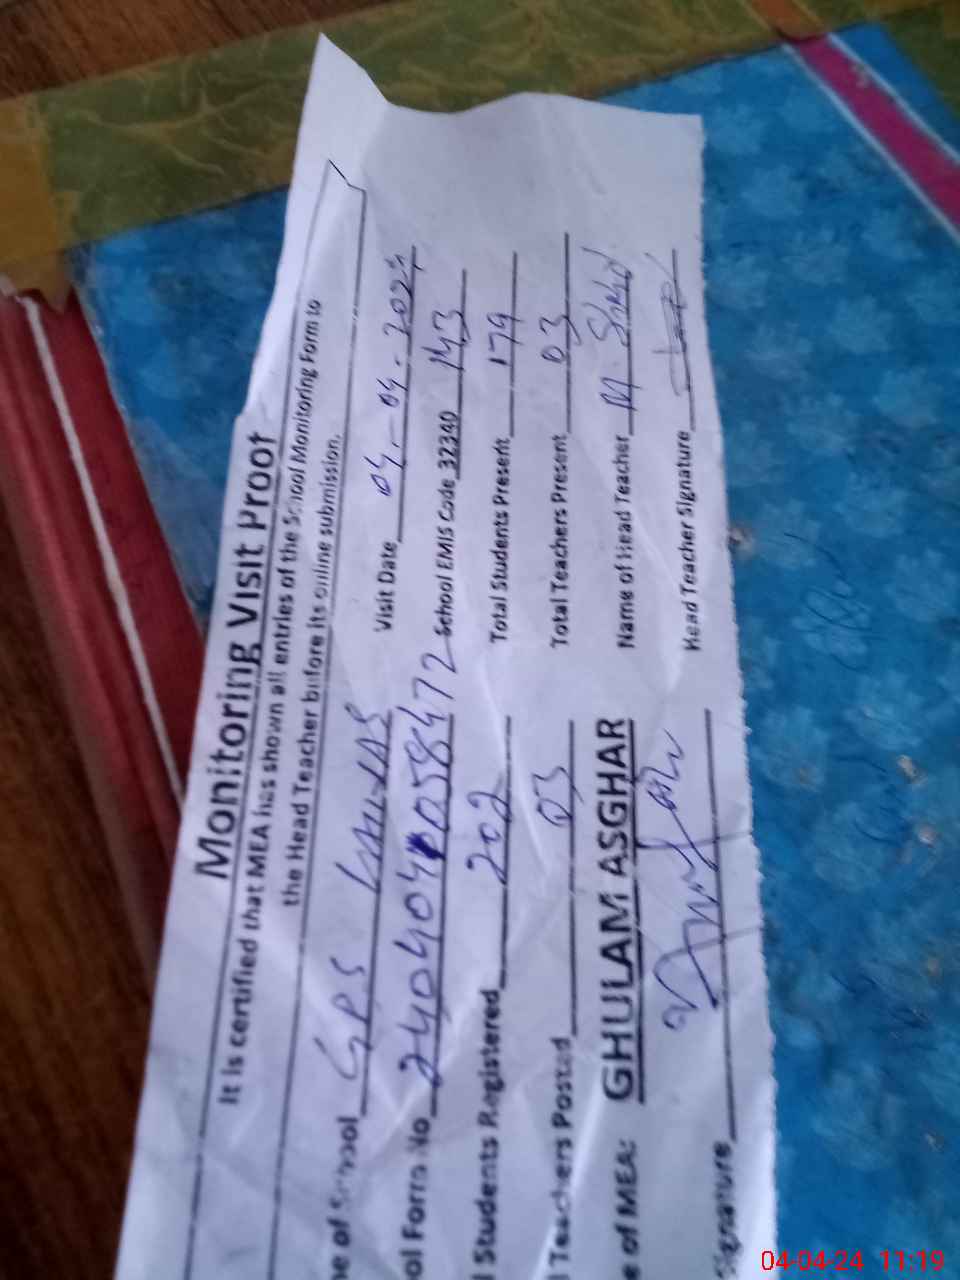 Monitoring Visit Proof
It is certified that MEA has shown all entries of the School Monitoring Form to
the Head Teacher before its online submission.
ne of School GPS Visit Date 04-04-2024
ol Form No School EMIS Code 32340 143
l Students Registered 202 Total Students Present 179
l Teachers Posted 03 Total Teachers Present 03
e of MEA: GHULAM ASGHAR Name of Head Teacher M.
Signature Head Teacher Signature
04-04-24 11:19